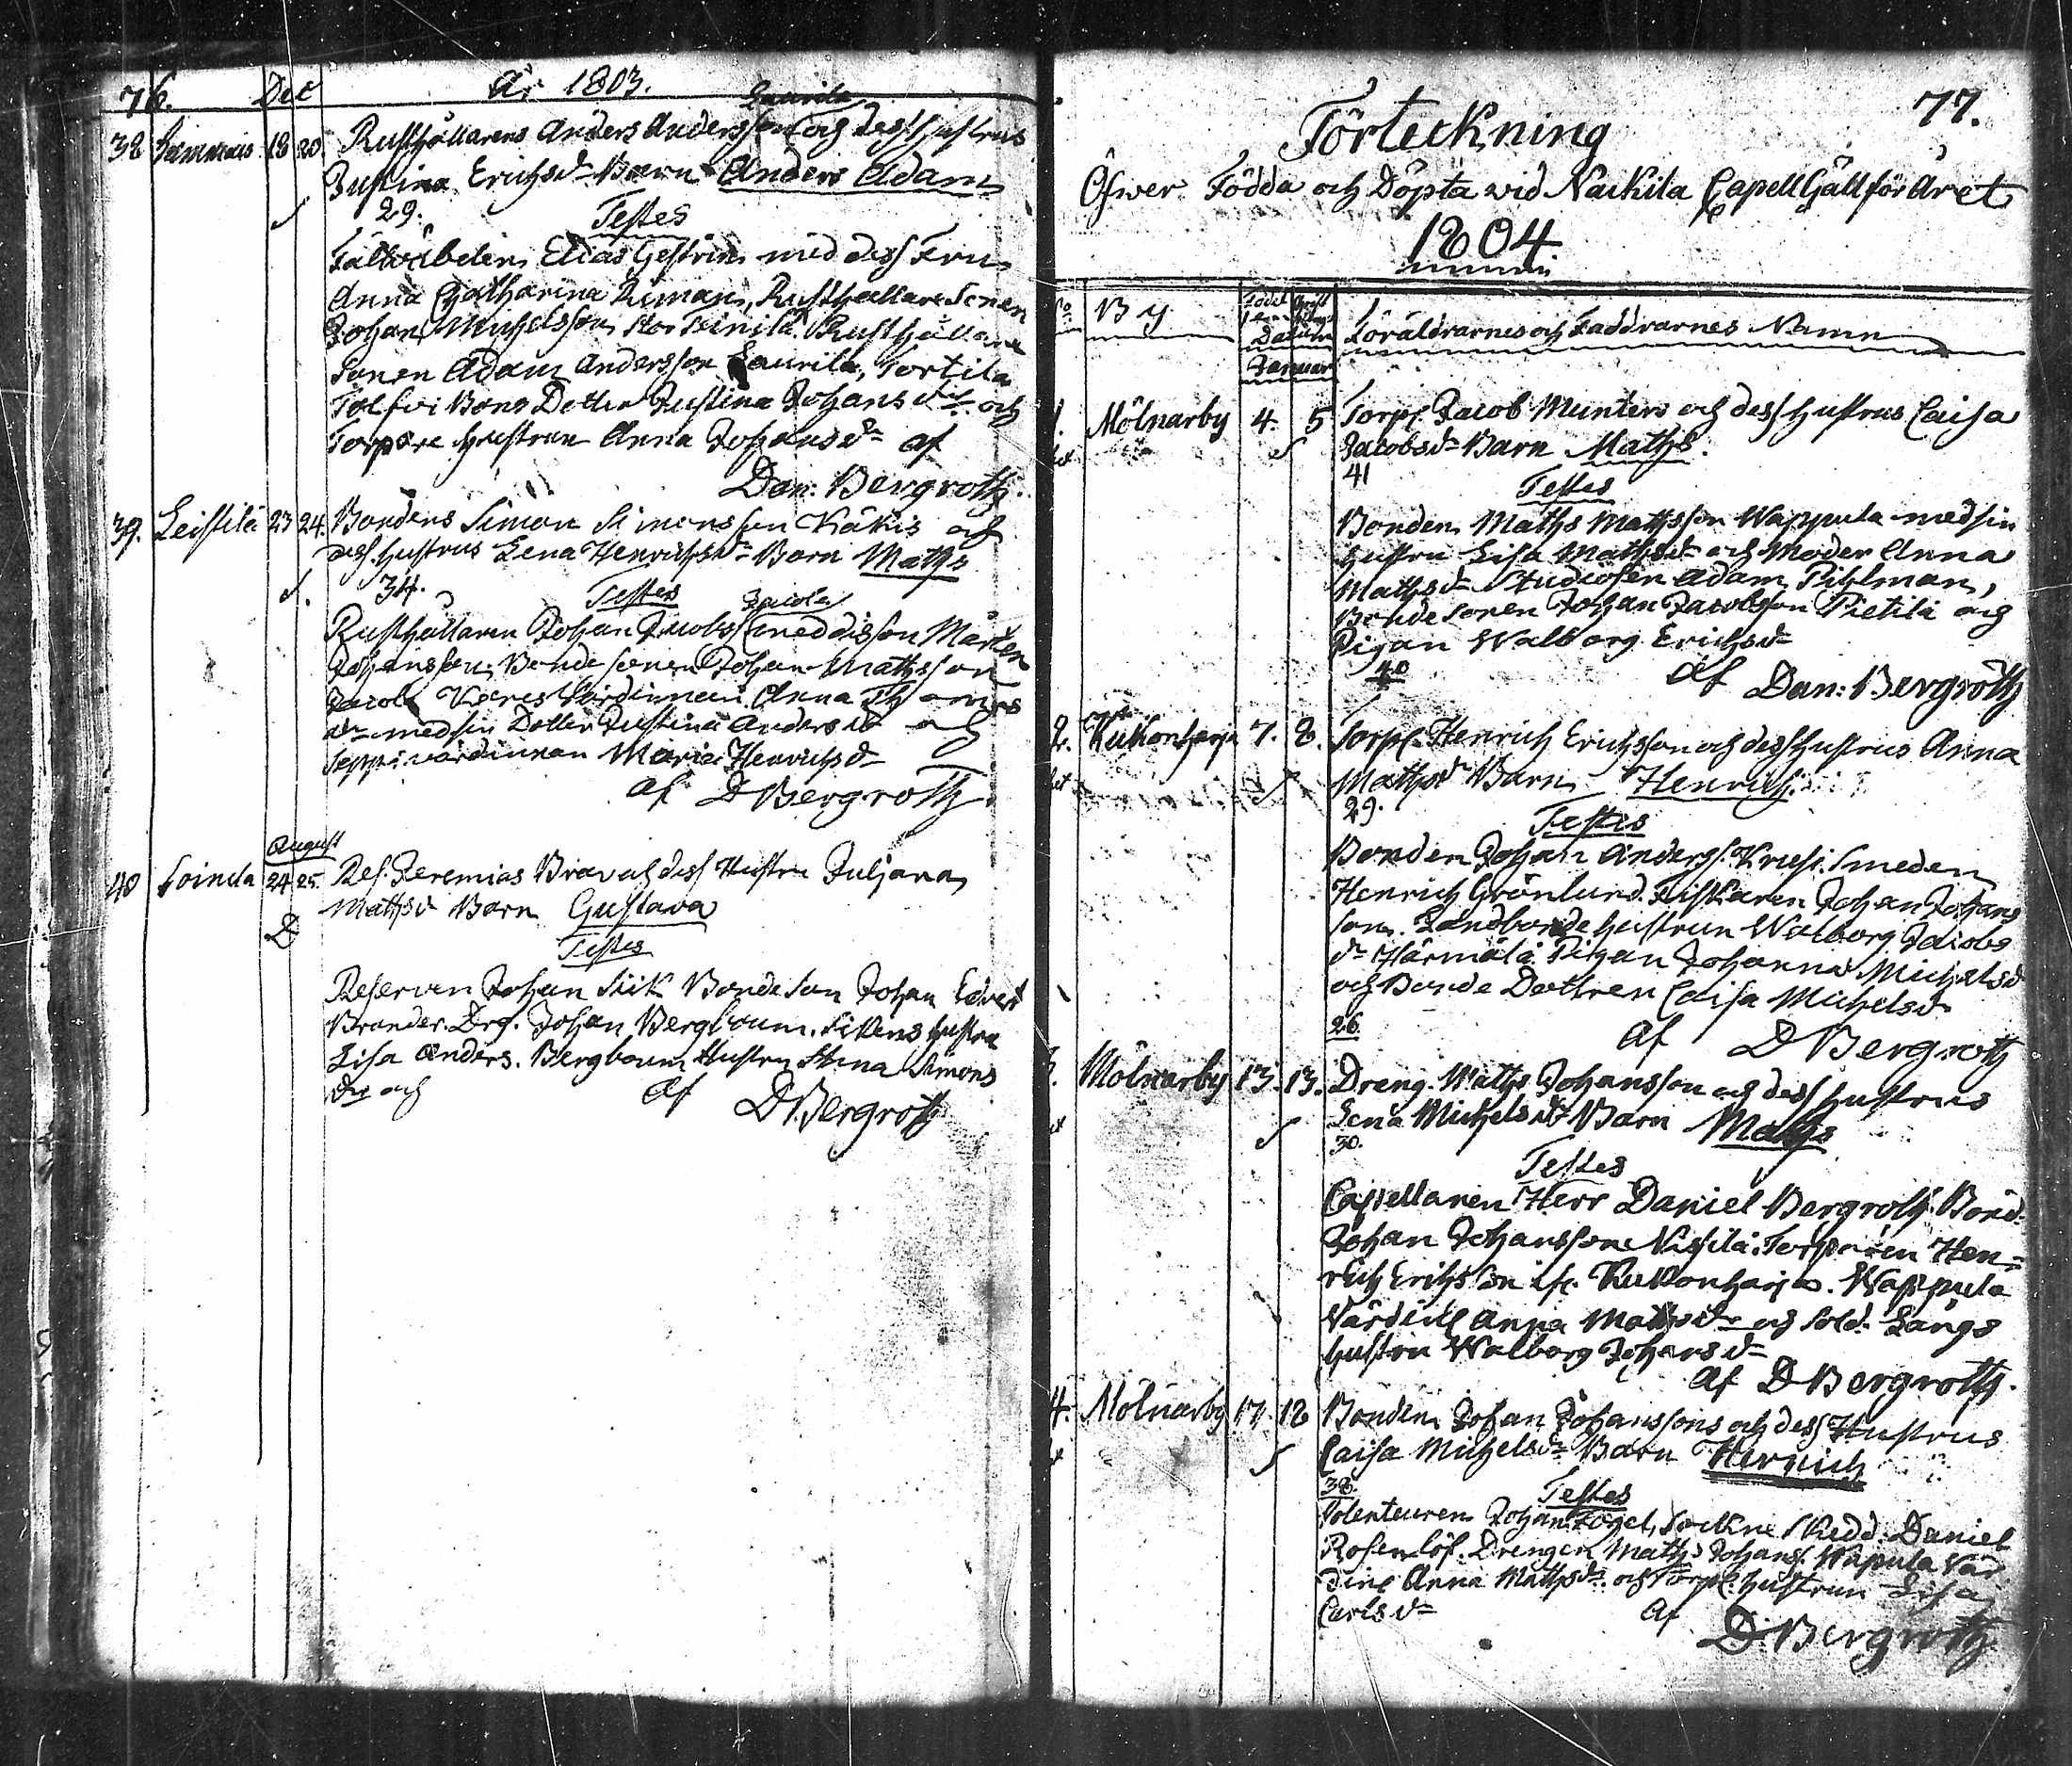 76. Dec År 1803.
Laurila
38 Tammais 18 20. Rusthållarens Anders Andersson och dess hustrus
Justina Erichsdr Barn Anders Adam
29. Testes
Fältväbelen Elias Gestrin med dess Fru
Anna Catharina Riman, Rusthållare Sonen
Johan Michelsson Rusthållare
Sonen Adam Andersson Laurila, Tortila
Tolfvi Bons Dotter Justina Johansdr och
Torpare hustrun Anna Johansdr af
Dan: Bergroth.
39. Leistilä 23 24. Bondens Simon Simonsson Käkis och
dess hustrus Lena Henrichsdr Barn Maths
34. Testes Jacola
Rusthållaren Johan Jacobss. med dess son Mårten
Johansson. Bonde sonen Johan Mathsson
Jacola Värdinnan Anna Thomas
dr med sin Dotter Justina Andersdr och
Seppi värdinnan Maria Henrichsdr
af D Bergroth
August
40 Soinila 24 25. Res. Jeremias Brav och dess Hustru Juljana
Mathsdr Barn Gustava
D
Testes
Reserven Johan Siik Bonde Son Johan Edvert
Brander. Drg. Johan Bergboum. Sikens hustru
Lisa Anders. Bergboum Hustru Stina Simons
dr och af D. Bergroth
77.
Förteckning
Öfwer Födda och Döpta wid Nackila Capell Gäll för Året
1804
No. By Född Datum Föräldrarnes och Faddrarnes Namn
Januar
1. Mölnarby 4. 5 Torp. Jacob Munters och dess hustrus Caisa
Jacobsdr Barn Maths.
41
Testes
Bonden Maths Mathsson Wappula med sin
hustru Lisa Mathsdr och Moder Anna
Mathsdr Studiosen Adam Pihlman,
Bonde Sonen Johan Jacobsson Pietilä och
Pigan Walborg Erichsdr
40
af Dan: Bergroth
2. Kukonharja 7. 8. Torp. Henrich Erichsson och dess hustrus Anna
Mathsdr Barn Henrich.
29.
Testes
Bonden Johan Anderss. Krusi. Smeden
Henrich Grönlund. Fiskaren Johan Johans
son. Landbonde hustrun Walborg Jacobs
dr Härmälä. Pigan Johanna Michelsdr
och Bonde Dottren Caisa Michelsdr
26. af D Bergroth
3. Mölnarby 13. 13. Dreng. Maths Johansson och dess hustrus
Lena Michelsdr Barn Maths
30.
Testes
Capellanen Herr Daniel Bergroth Bond.
Johan Johansson Nissilä. Torparen Hen=
rich Erichsson Kukonharja. Wappula
Värdin Anna Mathsdr och Sold. Långs
hustru Walborg Johansdr
af D Bergroth.
4. Mölnarby 17. 18 Bonden Johan Johanssons och dess Hustrus
Caisa Michelsdr Barn Henrich
38. Testes
Volenteuren Johan Fogel, Sockne Skredd. Daniel
Rosenlöf. Drengen Maths Johanss. Wapula Vär
dine Anna Mathsdr. och Torp. hustrun Lisa
Carlsdr af
D. Bergroth